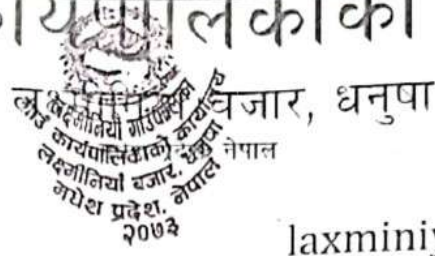 कार्यपालिकाको
बजार, धनुषा
नेपाल
लक्ष्मीनियाँ गाउँपालिका
गाउँ कार्यपालिकाको कार्यालय
लक्ष्मीनियाँ बजार, धनुषा
मधेश प्रदेश, नेपाल
२०७३
laxminiy